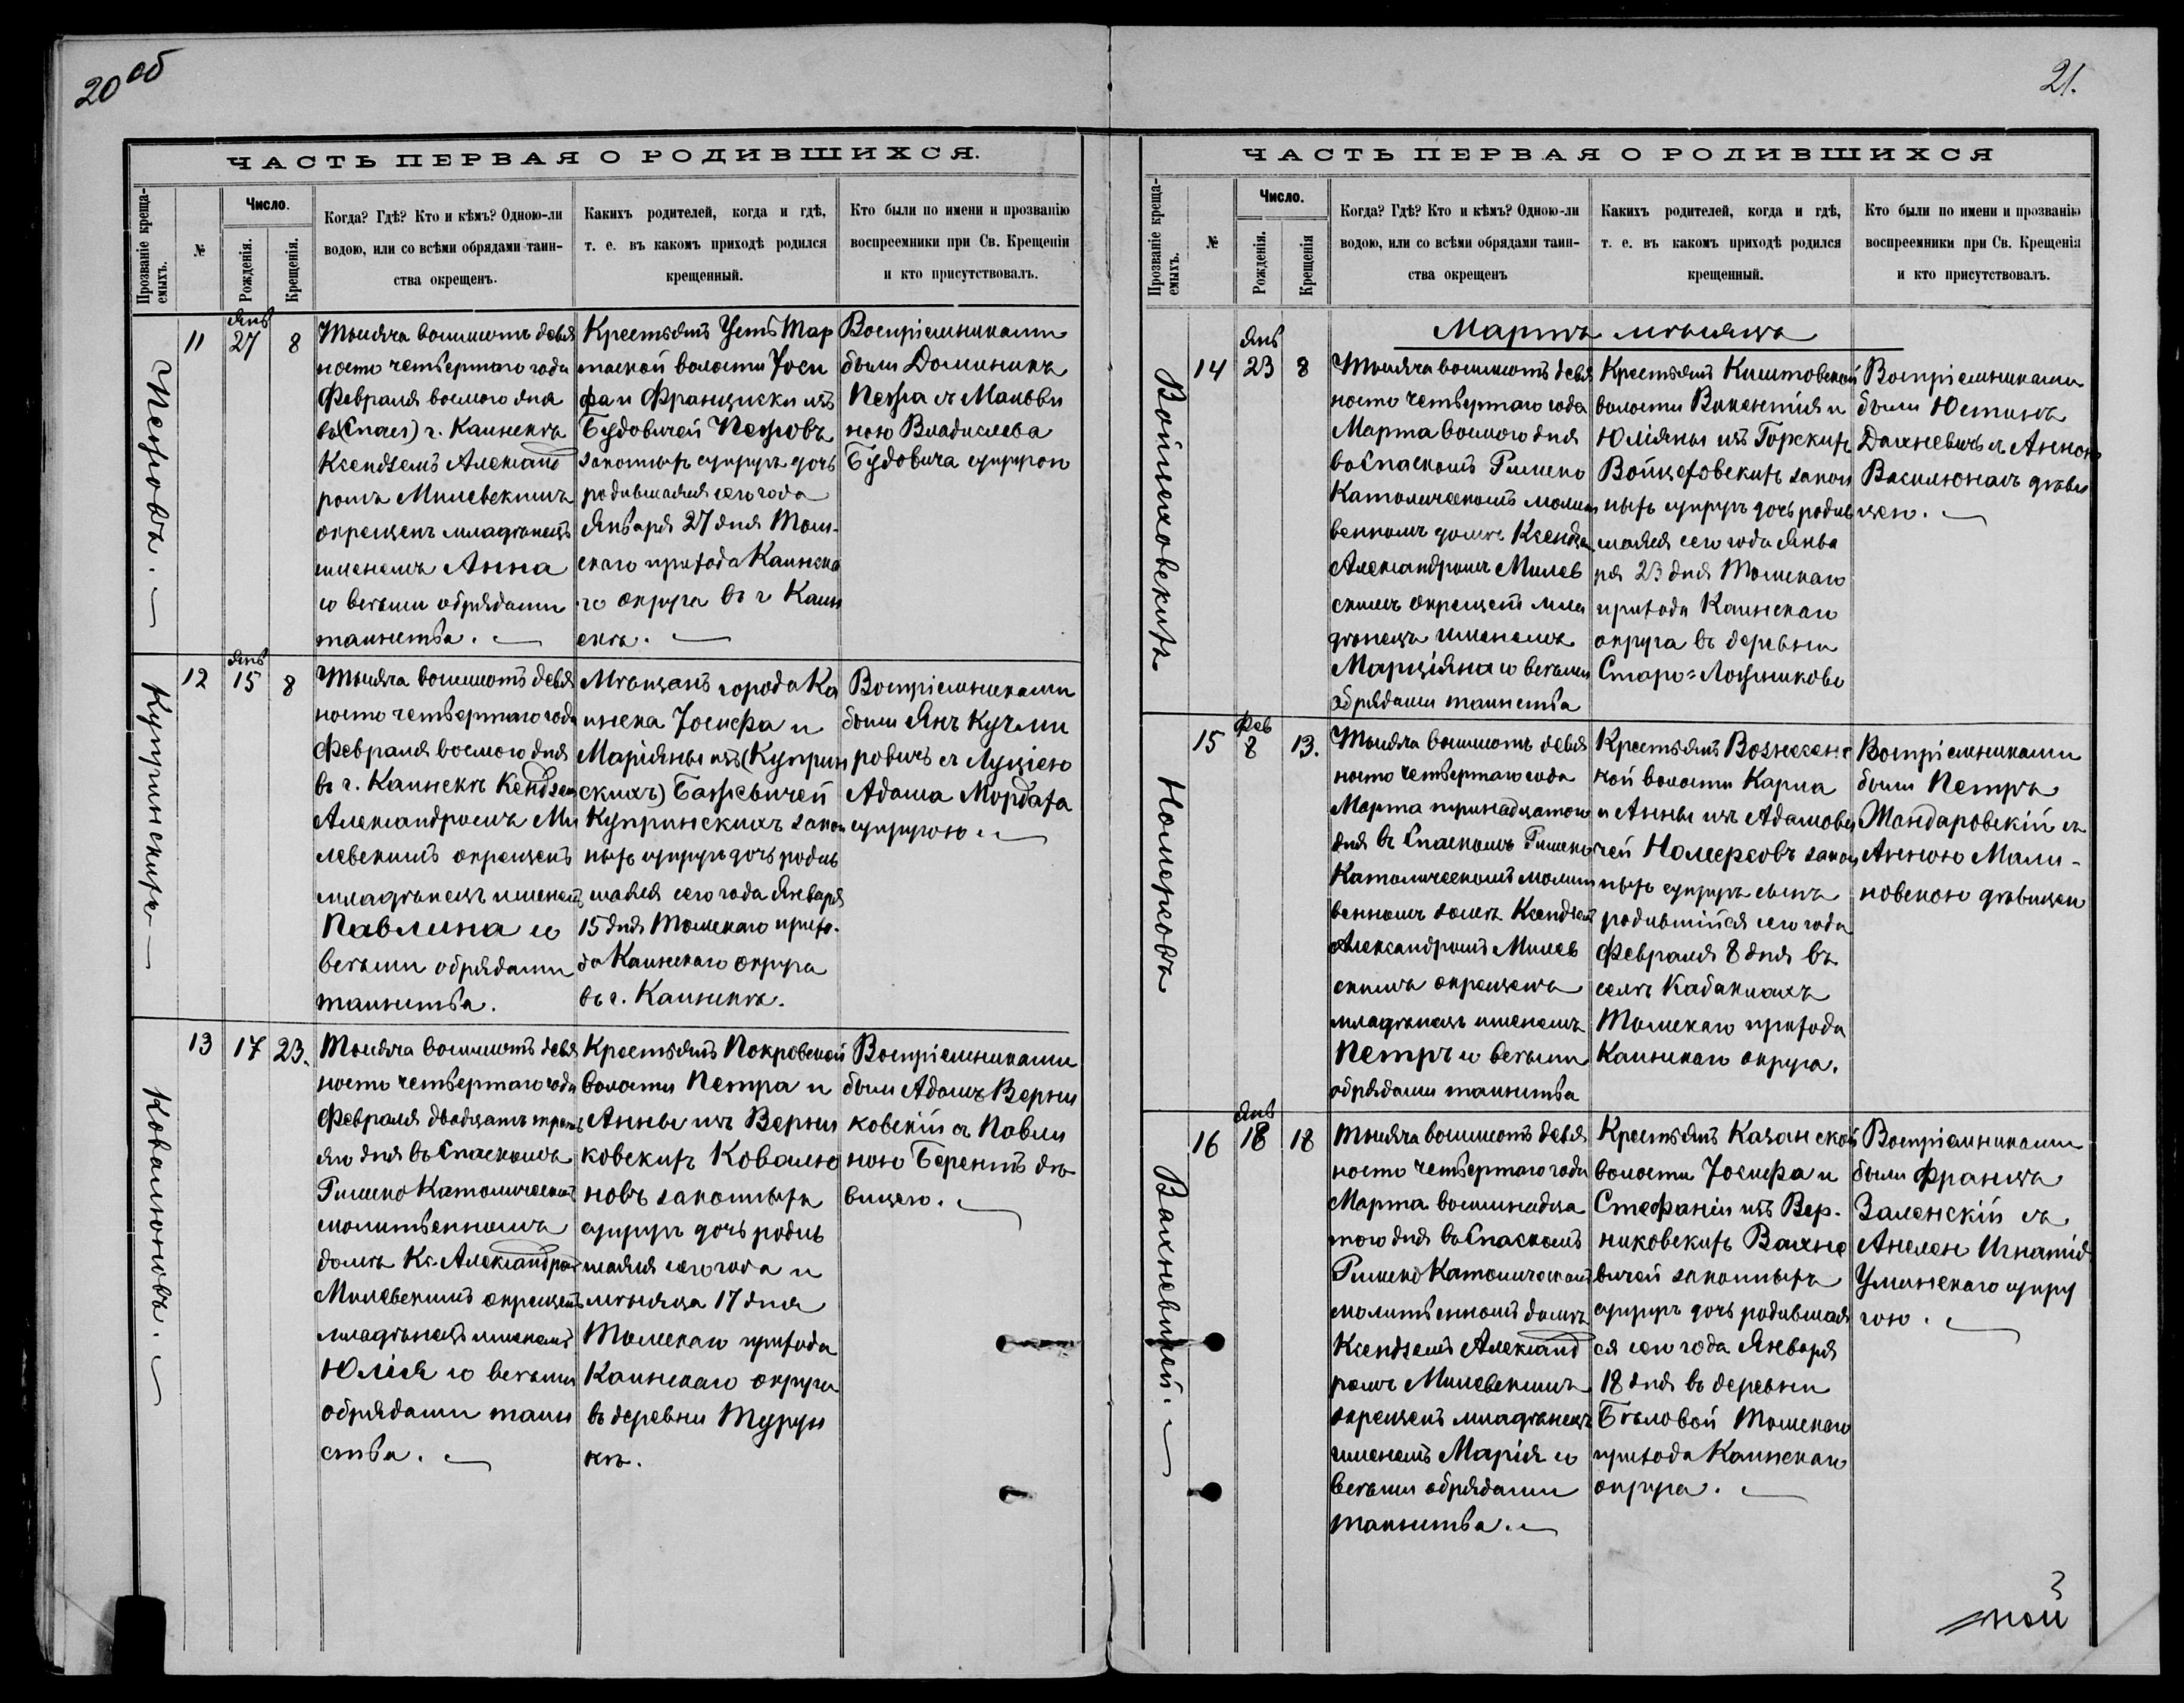 20 об
ЧАСТЬ ПЕРВАЯ О РОДИВШИХСЯ.
Прозваніе креща-
емыхъ.
№
Число.
Рожденія.
Крещенія.
Когда? Гдѣ? Кто и кѣмъ? Одною-ли
водою, или со всѣми обрядами таин-
ства окрещенъ.
Какихъ родителей, когда и гдѣ,
т. е. въ какомъ приходѣ родился
крещенный.
Кто были по имени и прозванію
воспреемники при Св. Крещеніи
и кто присутствовалъ.
11
Янв
27
8
Тысяча восемьсотъ девя
носто четвертаго года
Февраля восьмого дня
въ (Спасс) г. Каинскѣ
Ксендземъ Александ
ромъ Милевскимъ
окрещенъ младѣнецъ
именемъ Анна
со всѣми обрядами
таинства.
Крестьянъ Усть Тар
таской волости Іоси
фа и Франциски изъ
Будовичей
законныхъ супругъ дочь
родившаяся сего года
Января 27 дня Том-
скаго прихода Каинска
го округа въ г Каин
скѣ.
Воспріемниками
были Доминикъ
съ Мальви
ною Владислава
Будовича супругою
12
Янв
15
8
Купринскихъ
Тысяча восемьсотъ девя
носто четвертаго года
Февраля восьмого дня
въ г. Каинскѣ Ксендзем
Александромъ Ми
левскимъ окрещенъ
младѣнецъ именемъ
Павлина со
всѣми обрядами
таинства.
Мѣщанъ города Ка
инска Іосифа и
Маріяны изъ (Куприн
скихъ)
Купринскихъ закон
ныхъ супругъ дочь родив
шаяся сего года Января
15 дня Томскаго прихо-
да Каинскаго округа
въ г. Каинскѣ.
Воспріемниками
были Янъ
съ Луціею
Адама Мордаха
супругою
13
17
23.
Ковалюновъ.
Тысяча восемьсотъ девя
носто четвертаго года
Февраля двадцать треть
яго дня въ Спаскомъ
Римско Католической
молитвенномъ
домѣ Кс. Александром
Милевскимъ окрещенъ
младѣнецъ именемъ
Юлія со всѣми
обрядами таин
ства.
Крестьянъ Покровской
волости Петра и
Анны изъ Верни
ковскихъ Ковалю
новъ законныхъ
супругъ дочь родив
шаяся сего года и
мѣсяца 17 дня
Томскаго прихода
Каинскаго округа
въ деревни Турун
кѣ.
Воспріемниками
были Адамъ Верни
ковскій съ Павли
ною Берентъ дѣ
вицею.
21.
ЧАСТЬ ПЕРВАЯ О РОДИВШИХСЯ
Прозваніе креща-
емыхъ.
№
Число.
Рожденія.
Крещенія
Когда? Гдѣ? Кто и кѣмъ? Одною-ли
водою, или со всѣми обрядами таин-
ства окрещенъ
Какихъ родителей, когда и гдѣ,
т. е. въ какомъ приходѣ родился
крещенный.
Кто были по имени и прозванію
воспреемники при Св. Крещенія
и кто присутствовалъ.
Мартъ мѣсяцъ
14
Янв
23
8
Войцеховскихъ
Тысяча восемьсотъ девя
носто четвертаго года
Марта восьмого дня
въ Спаскомъ Римско
Католическомъ молит
венномъ домѣ Ксендзем
Александромъ Милев
скимъ окрещенъ мла
дѣнецъ именемъ
Марціяна со всѣми
обрядами таинства
Крестьянъ Киштовской
волости Викентія и
Юліяны изъ Горскихъ
Войцеховскихъ закон
ныхъ супругъ дочь родив
шаяся сего года Янва
ря 23 дня Томскаго
прихода Каинскаго
округа въ деревни
Старо-Логиниково
Воспріемниками
были Юстинъ
Дахневичъ съ Анною
дѣви
цею.
15
Фев
8
13.
Номерковъ
Тысяча восемьсотъ девя
носто четвертаго года
Марта тринадцатого
дня въ Спаскомъ Римско
Католическомъ молит
венномъ домѣ Ксендзем
Александромъ Милев
скимъ окрещенъ
младѣнецъ именемъ
Петръ со всѣми
обрядами таинства
Крестьянъ Вознесенс
кой волости Карла
и Анны изъ Адамови
чей закон
ныхъ супругъ сынъ
родившійся сего года
Февраля 8 дня въ
селѣ Кабаклахъ
Томскаго прихода
Каинскаго округа.
Воспріемниками
были Петръ
Мандаровскій съ
Анною Мали-
новскою дѣвицею
16
Янв
18
18
Вахневичей.
Тысяча восемьсотъ девя
носто четвертаго года
Марта восемнадца
того дня въ Спаскомъ
Римско Католическомъ
молитвенномъ домѣ
Ксендземъ Александ
ромъ Милевскимъ
окрещенъ младѣнецъ
именемъ Марія со
всѣми обрядами
таинства.
Крестьянъ Казанской
волости Іосифа и
Стефаніи изъ Вер-
никовскихъ Вахне
вичей законныхъ
супругъ дочь родившая
ся сего года Января
18 дня въ деревни
Бѣловой Томскаго
прихода Каинскаго
округа.
Воспріемниками
были Францъ
Заленскій съ
Анелею Игнатія
Уминскаго супру
гою.